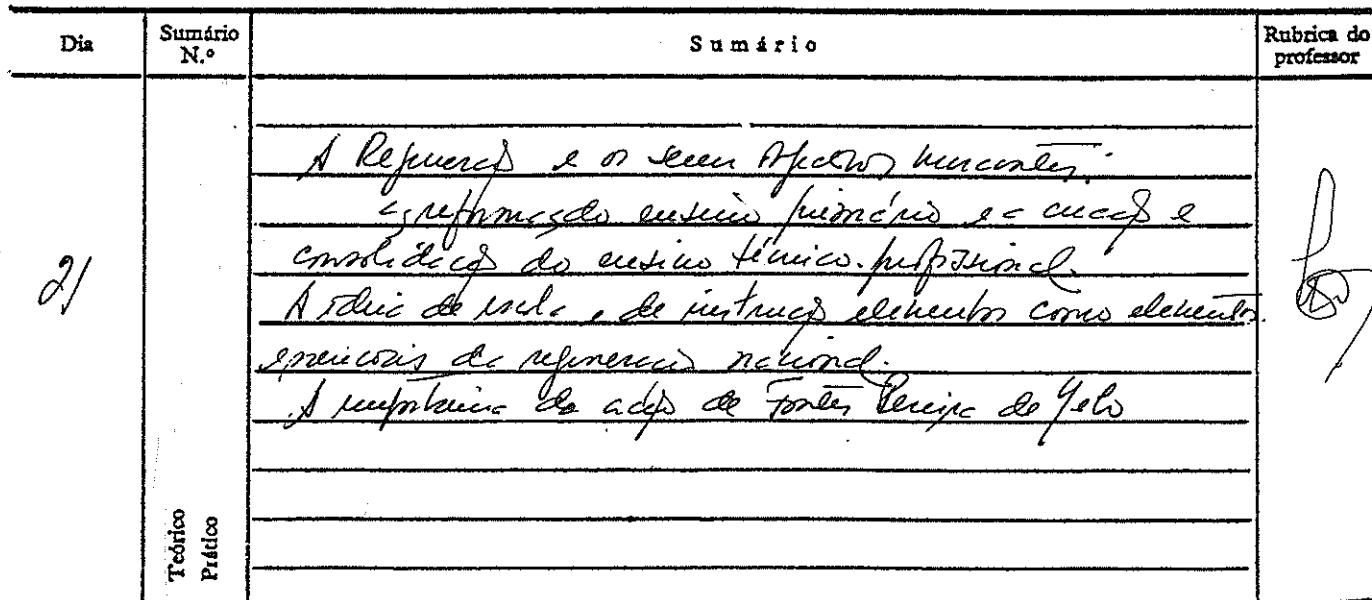 Dia
Sumário N.º
Sumário
Rubrica do professor
A Regeneração e os seus aspectos marcantes:
as reformas do ensino primário e a criação e
consolidação do ensino técnico-profissional.
A ideia de escola e de instrução elementar como elementos
essenciais da regeneração nacional.
A importância da acção de Fontes Pereira de Melo
21
Teórico
Prático